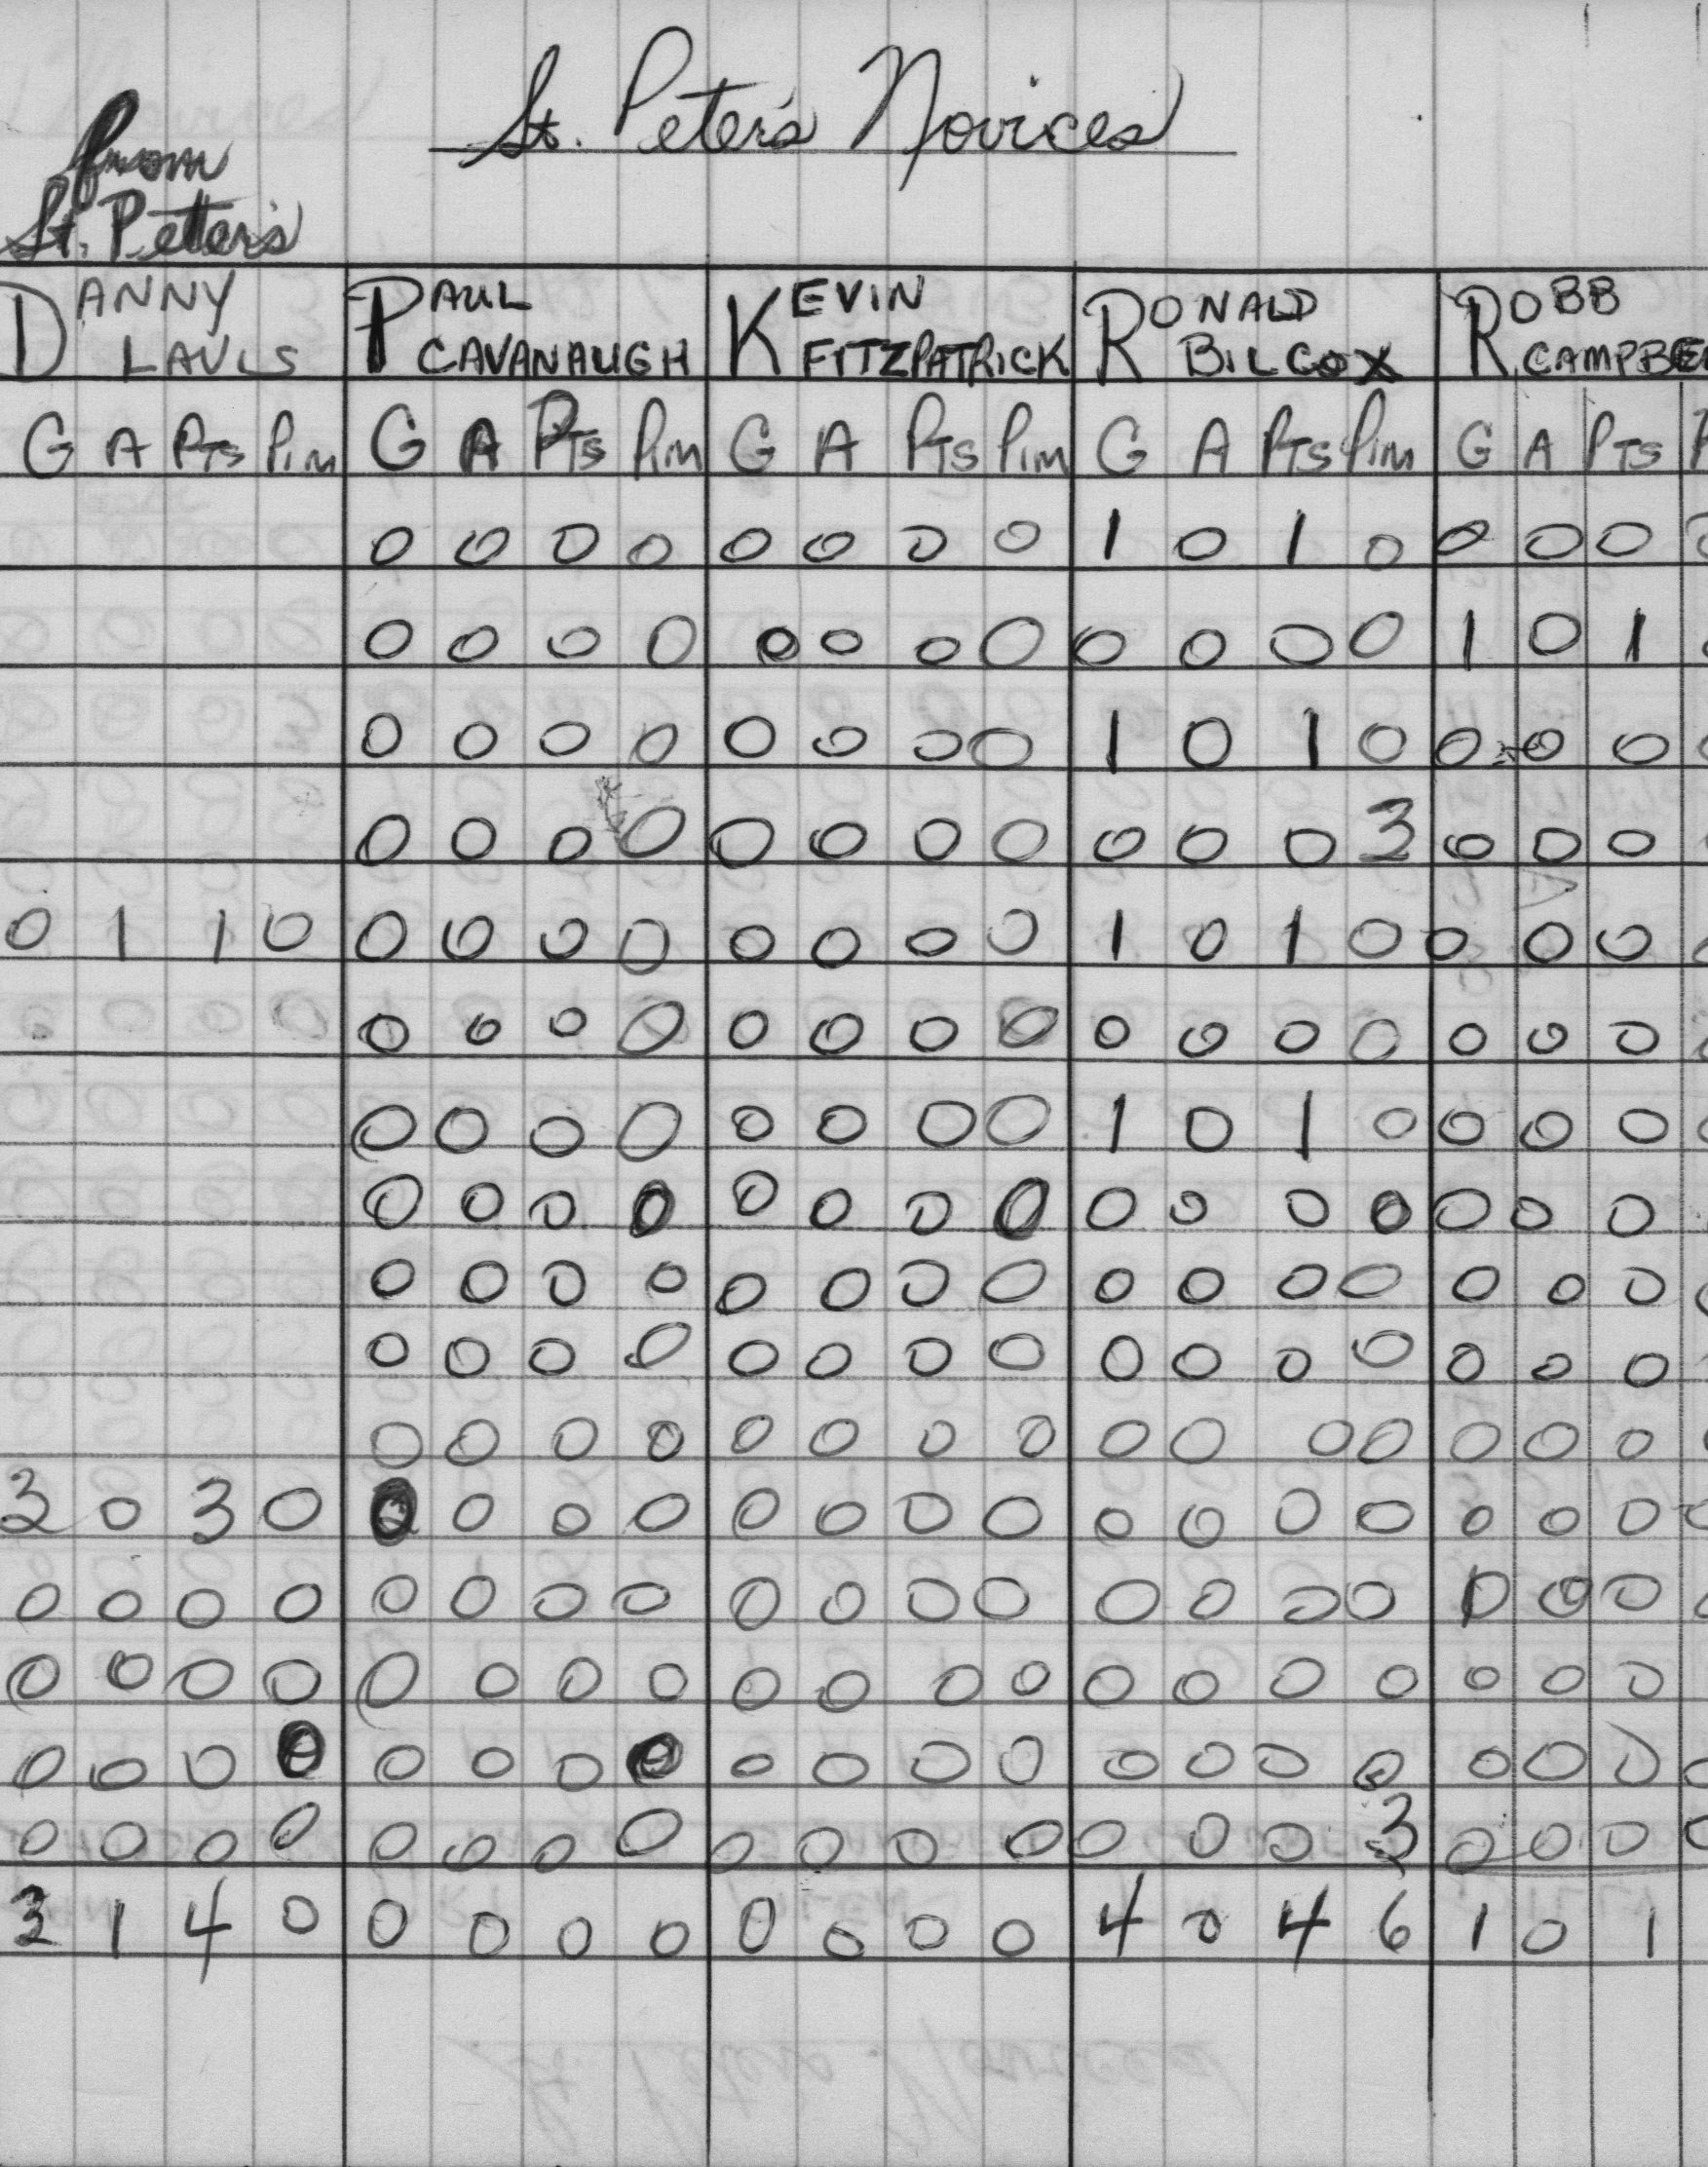 St. Peter's Novices
from
St. Petter's
DANNY LAVLS PAUL CAVANAUGH KEVIN FITZPATRICK RONALD BILCOX ROBB CAMPBE
G A PTS Pim G A PTS Pim G A PTS Pim G A PTS Pim G A PTS P
0 0 0 0 0 0 0 0 1 0 1 0 0 0 0
0 0 0 0 0 0 0 0 0 0 0 0 1 0 1
0 0 0 0 0 0 0 0 1 0 1 0 0 0 0
0 0 0 0 0 0 0 0 0 0 0 3 0 0 0
0 1 1 0 0 0 0 0 0 0 0 0 1 0 1 0 0 0 0
0 0 0 0 0 0 0 0 0 0 0 0 0 0 0
0 0 0 0 0 0 0 0 1 0 1 0 0 0 0
0 0 0 0 0 0 0 0 0 0 0 0 0 0 0
0 0 0 0 0 0 0 0 0 0 0 0 0 0 0
0 0 0 0 0 0 0 0 0 0 0 0 0 0 0
0 0 0 0 0 0 0 0 0 0 0 0 0 0 0
3 0 3 0 0 0 0 0 0 0 0 0 0 0 0 0 0 0 0
0 0 0 0 0 0 0 0 0 0 0 0 0 0 0 0 0 0 0
0 0 0 0 0 0 0 0 0 0 0 0 0 0 0 0 0 0 0
0 0 0 0 0 0 0 0 0 0 0 0 0 0 0 0 0 0 0
0 0 0 0 0 0 0 0 0 0 0 0 0 0 0 3 0 0 0
3 1 4 0 0 0 0 0 0 0 0 0 4 0 4 6 1 0 1